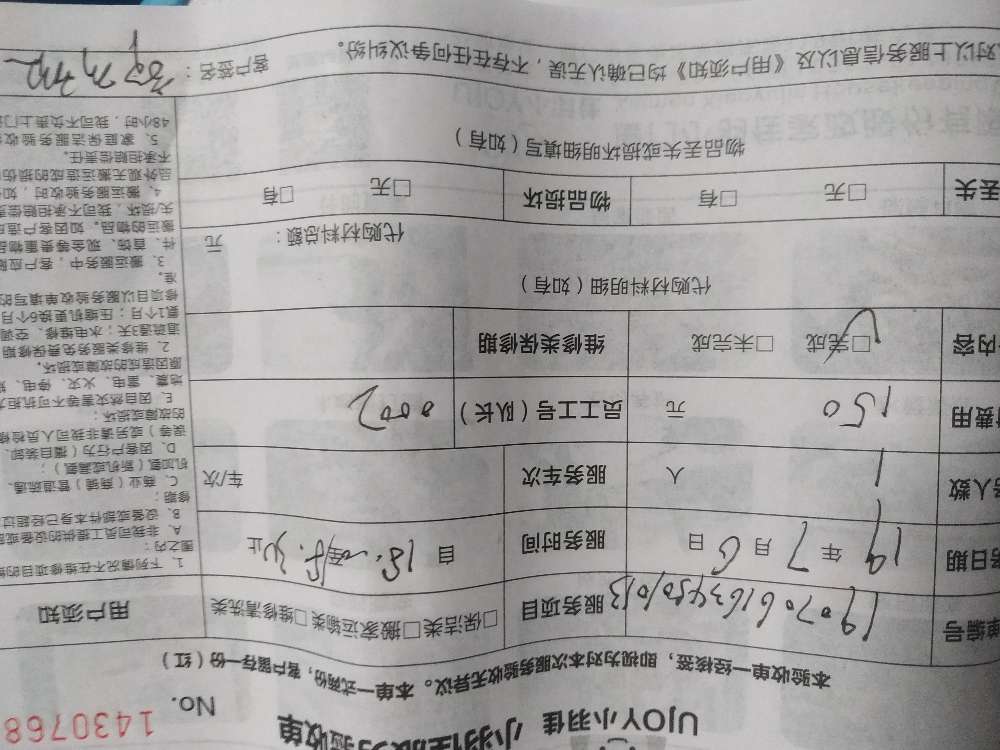 UJOY小羽佳 小羽佳服务验收单
No. 1430768
本验收单一经核签，即视为对本次服务验收无异议。本单一式两份，客户留存一份（红）
单编号 19070616345010113 服务项目 □保洁类□搬家运输类□维修清洗类 用户须知
务日期 19 年 7 月 6 日 服务时间 自 至 止
务人数 1 人 服务车次 车/次
费用 150 元 员工工号（队长） 0002
内容 □完成 □未完成 维修类保修期
代购材料明细（如有）
代购材料总额： 元
丢失 □无 □有 物品损坏 □无 □有
物品丢失或损坏明细填写（如有）
对以上服务信息以及《用户须知》均已确认无误，不存在任何争议纠纷。 客户签名：
1、下列情况不在维修项目的
围之内：
A、非我司员工提供的设备或
B、设备或部件本身已经超过
修期；
C、商业（商铺）管道疏通、
机加氨（新机或漏氨）；
D、因客户行为（擅自装卸、
误等）或另请非我司人员检修
的故障或损坏；
E、因自然灾害等不可抗拒
地震、雷电、火灾、停电、
原因造成的故障或损坏。
2、维修类服务免费保修期
道疏通3天；水电维修、空调
氨1个月；压缩机更换6个月
修项目以服务验收单填写的
准。
3、搬运服务中，客户应
件、首饰、现金等贵重物品
搬运的物品。如因客户造
失/损坏，我司不承担赔偿责
4、搬运服务验收时，如
品外观无搬运造成的损伤
不承担赔偿责任。
5、家庭保洁服务验收
48小时，我司不负责上门